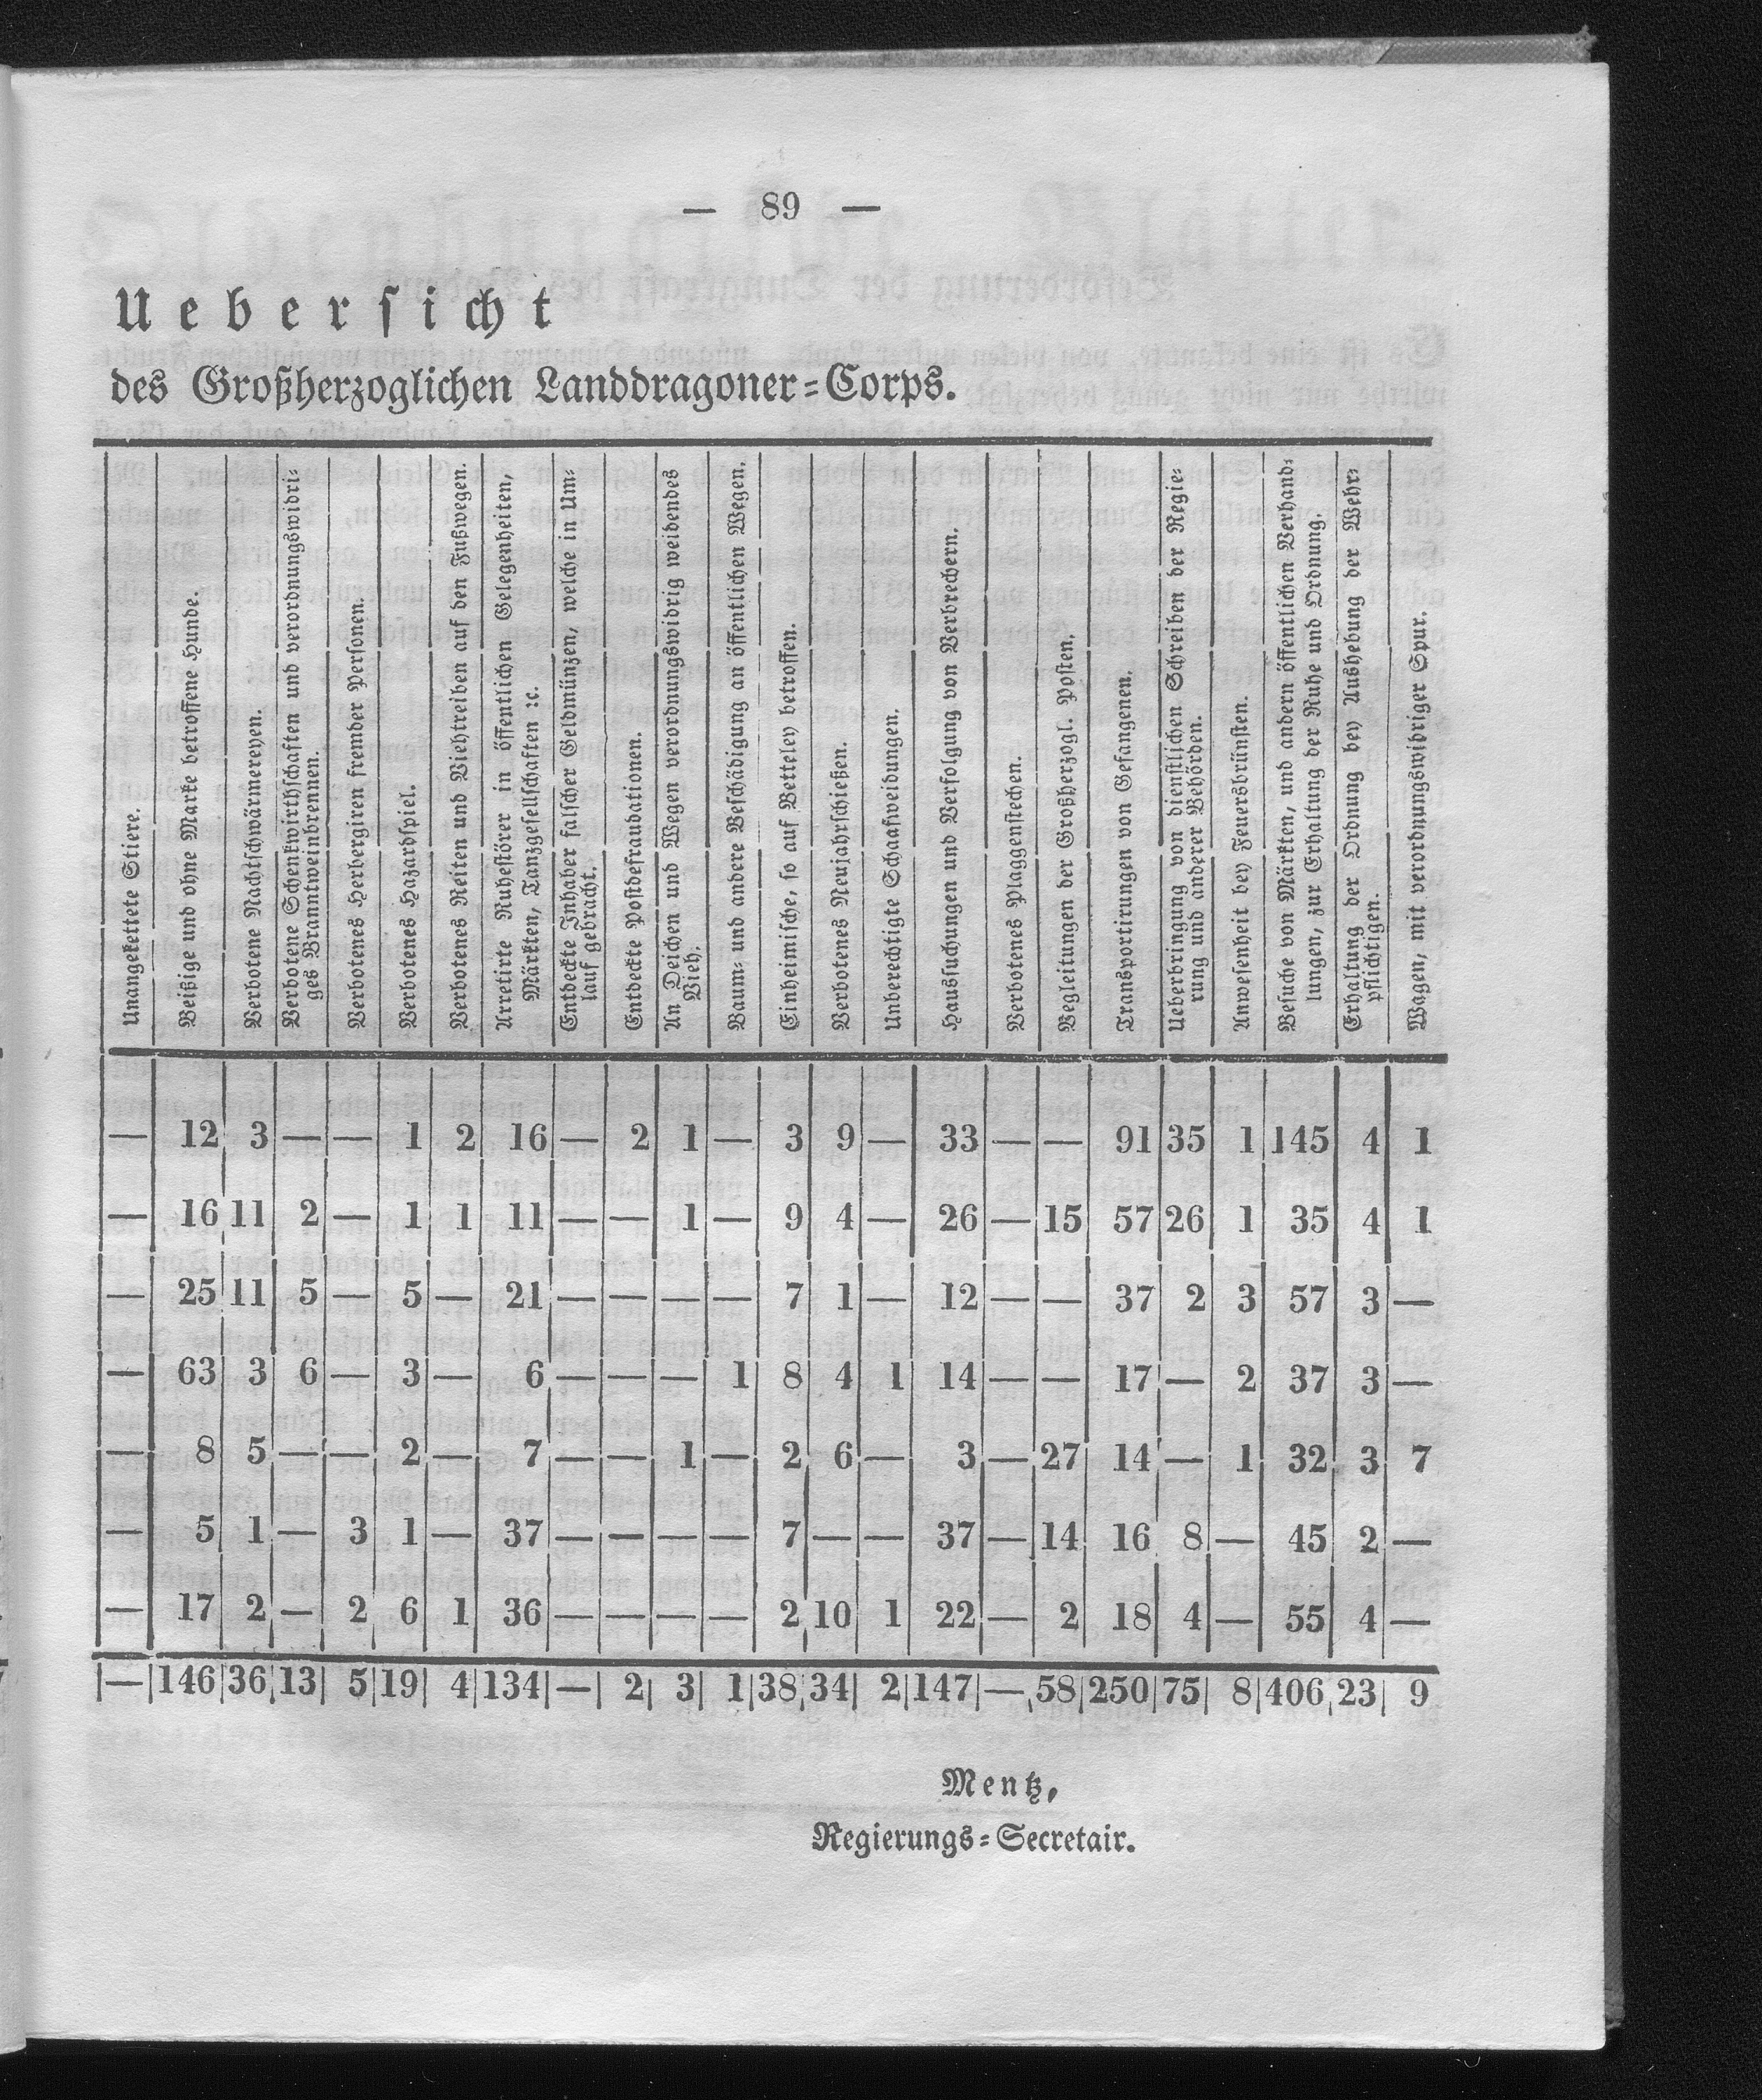 — 89 —
Uebersicht
des Großherzoglichen Landdragoner=Corps.
Unangekettete Stiere.
Beißige und ohne Marke betroffene Hunde.
Verbotene Nachtschwärmereyen.
Verbotene Schenkwirthschaften und verordnungswidri=
ges Branntweinbrennen.
Verbotenes Herbergiren fremder Personen.
Verbotenes Hazardspiel.
Verbotenes Reiten und Viehtreiben auf den Fußwegen.
Arretirte Ruhestörer in öffentlichen Gelegenheiten,
Märkten, Tanzgesellschaften ꝛc.
Entdeckte Inhaber falscher Geldmünzen, welche in Um=
lauf gebracht.
Entdeckte Postdefraudationen.
An Deichen und Wegen verordnungswidrig weidendes
Vieh.
Baum= und andere Beschädigung an öffentlichen Wegen.
Einheimische, so auf Betteley betroffen.
Verbotenes Neujahrschießen.
Unberechtigte Schaafweidungen.
Haussuchungen und Verfolgung von Verbrechern.
Verbotenes Plaggenstechen.
Begleitungen der Großherzogl. Posten.
Transportirungen von Gefangenen.
Ueberbringung von dienstlichen Schreiben der Regie=
rung und anderer Behörden.
Anwesenheit bey Feuersbrünsten.
Besuche von Märkten, und andern öffentlichen Verhand=
lungen, zur Erhaltung der Ruhe und Ordnung.
Erhaltung der Ordnung bey Aushebung der Wehr=
pflichtigen.
Wagen, mit verordnungswidriger Spur.
— 12 3 — — 1 2 16 — 2 1 — 3 9 — 33 — — 91 35 1 145 4 1
— 16 11 2 — 1 1 11 — — 1 — 9 4 — 26 — 15 57 26 1 35 4 1
— 25 11 5 — 5 — 21 — — — — 7 1 — 12 — — 37 2 3 57 3 —
— 63 3 6 — 3 — 6 — — — 1 8 4 1 14 — — 17 — 2 37 3 —
— 8 5 — — 2 — 7 — — 1 — 2 6 — 3 — 27 14 — 1 32 3 7
— 5 1 — 3 1 — 37 — — — — 7 — — 37 — 14 16 8 — 45 2 —
— 17 2 — 2 6 1 36 — — — — 2 10 1 22 — 2 18 4 — 55 4 —
— 146 36 13 5 19 4 134 — 2 3 1 38 34 2 147 — 58 250 75 8 406 23 9
Mentz,
Regierungs=Secretair.